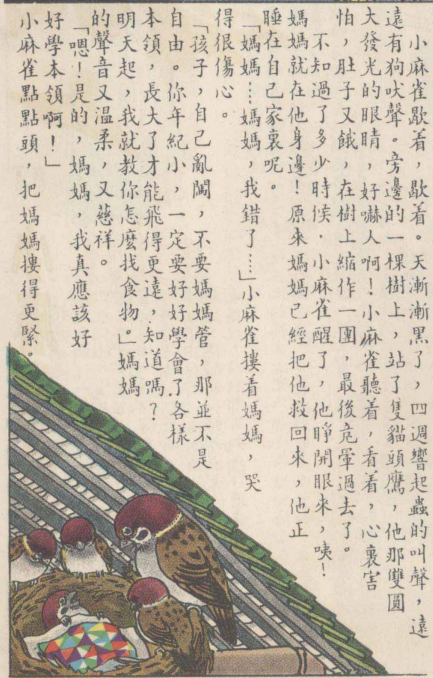 小麻雀歇着，歇着。天漸漸黑了，四週響起蟲的叫聲，遠
遠有狗吠聲。旁邊的一棵樹上，站了隻貓頭鷹，他那雙圓
大發光的眼睛，好嚇人啊！小麻雀聽着，看着，心裏害
怕，肚子又餓，在樹上縮作一團，最後竟暈過去了。
不知過了多少時候，小麻雀醒了，他睜開眼來，咦！
媽媽就在他身邊！原來媽媽已經把他救回來，他正
睡在自己家裏呢。
「媽媽…媽媽，我錯了…」小麻雀摟着媽媽，哭
得很傷心。
「孩子，自己亂闖，不要媽媽管，那並不是
自由。你年紀小，一定要好好學會了各樣
本領，長大了才能飛得更遠，知道嗎？
明天起，我就教你怎麼找食物。」媽媽
的聲音又温柔，又慈祥。
「嗯！是的，媽媽，我真應該好
好學本領啊！」
小麻雀點點頭，把媽媽摟得更緊。